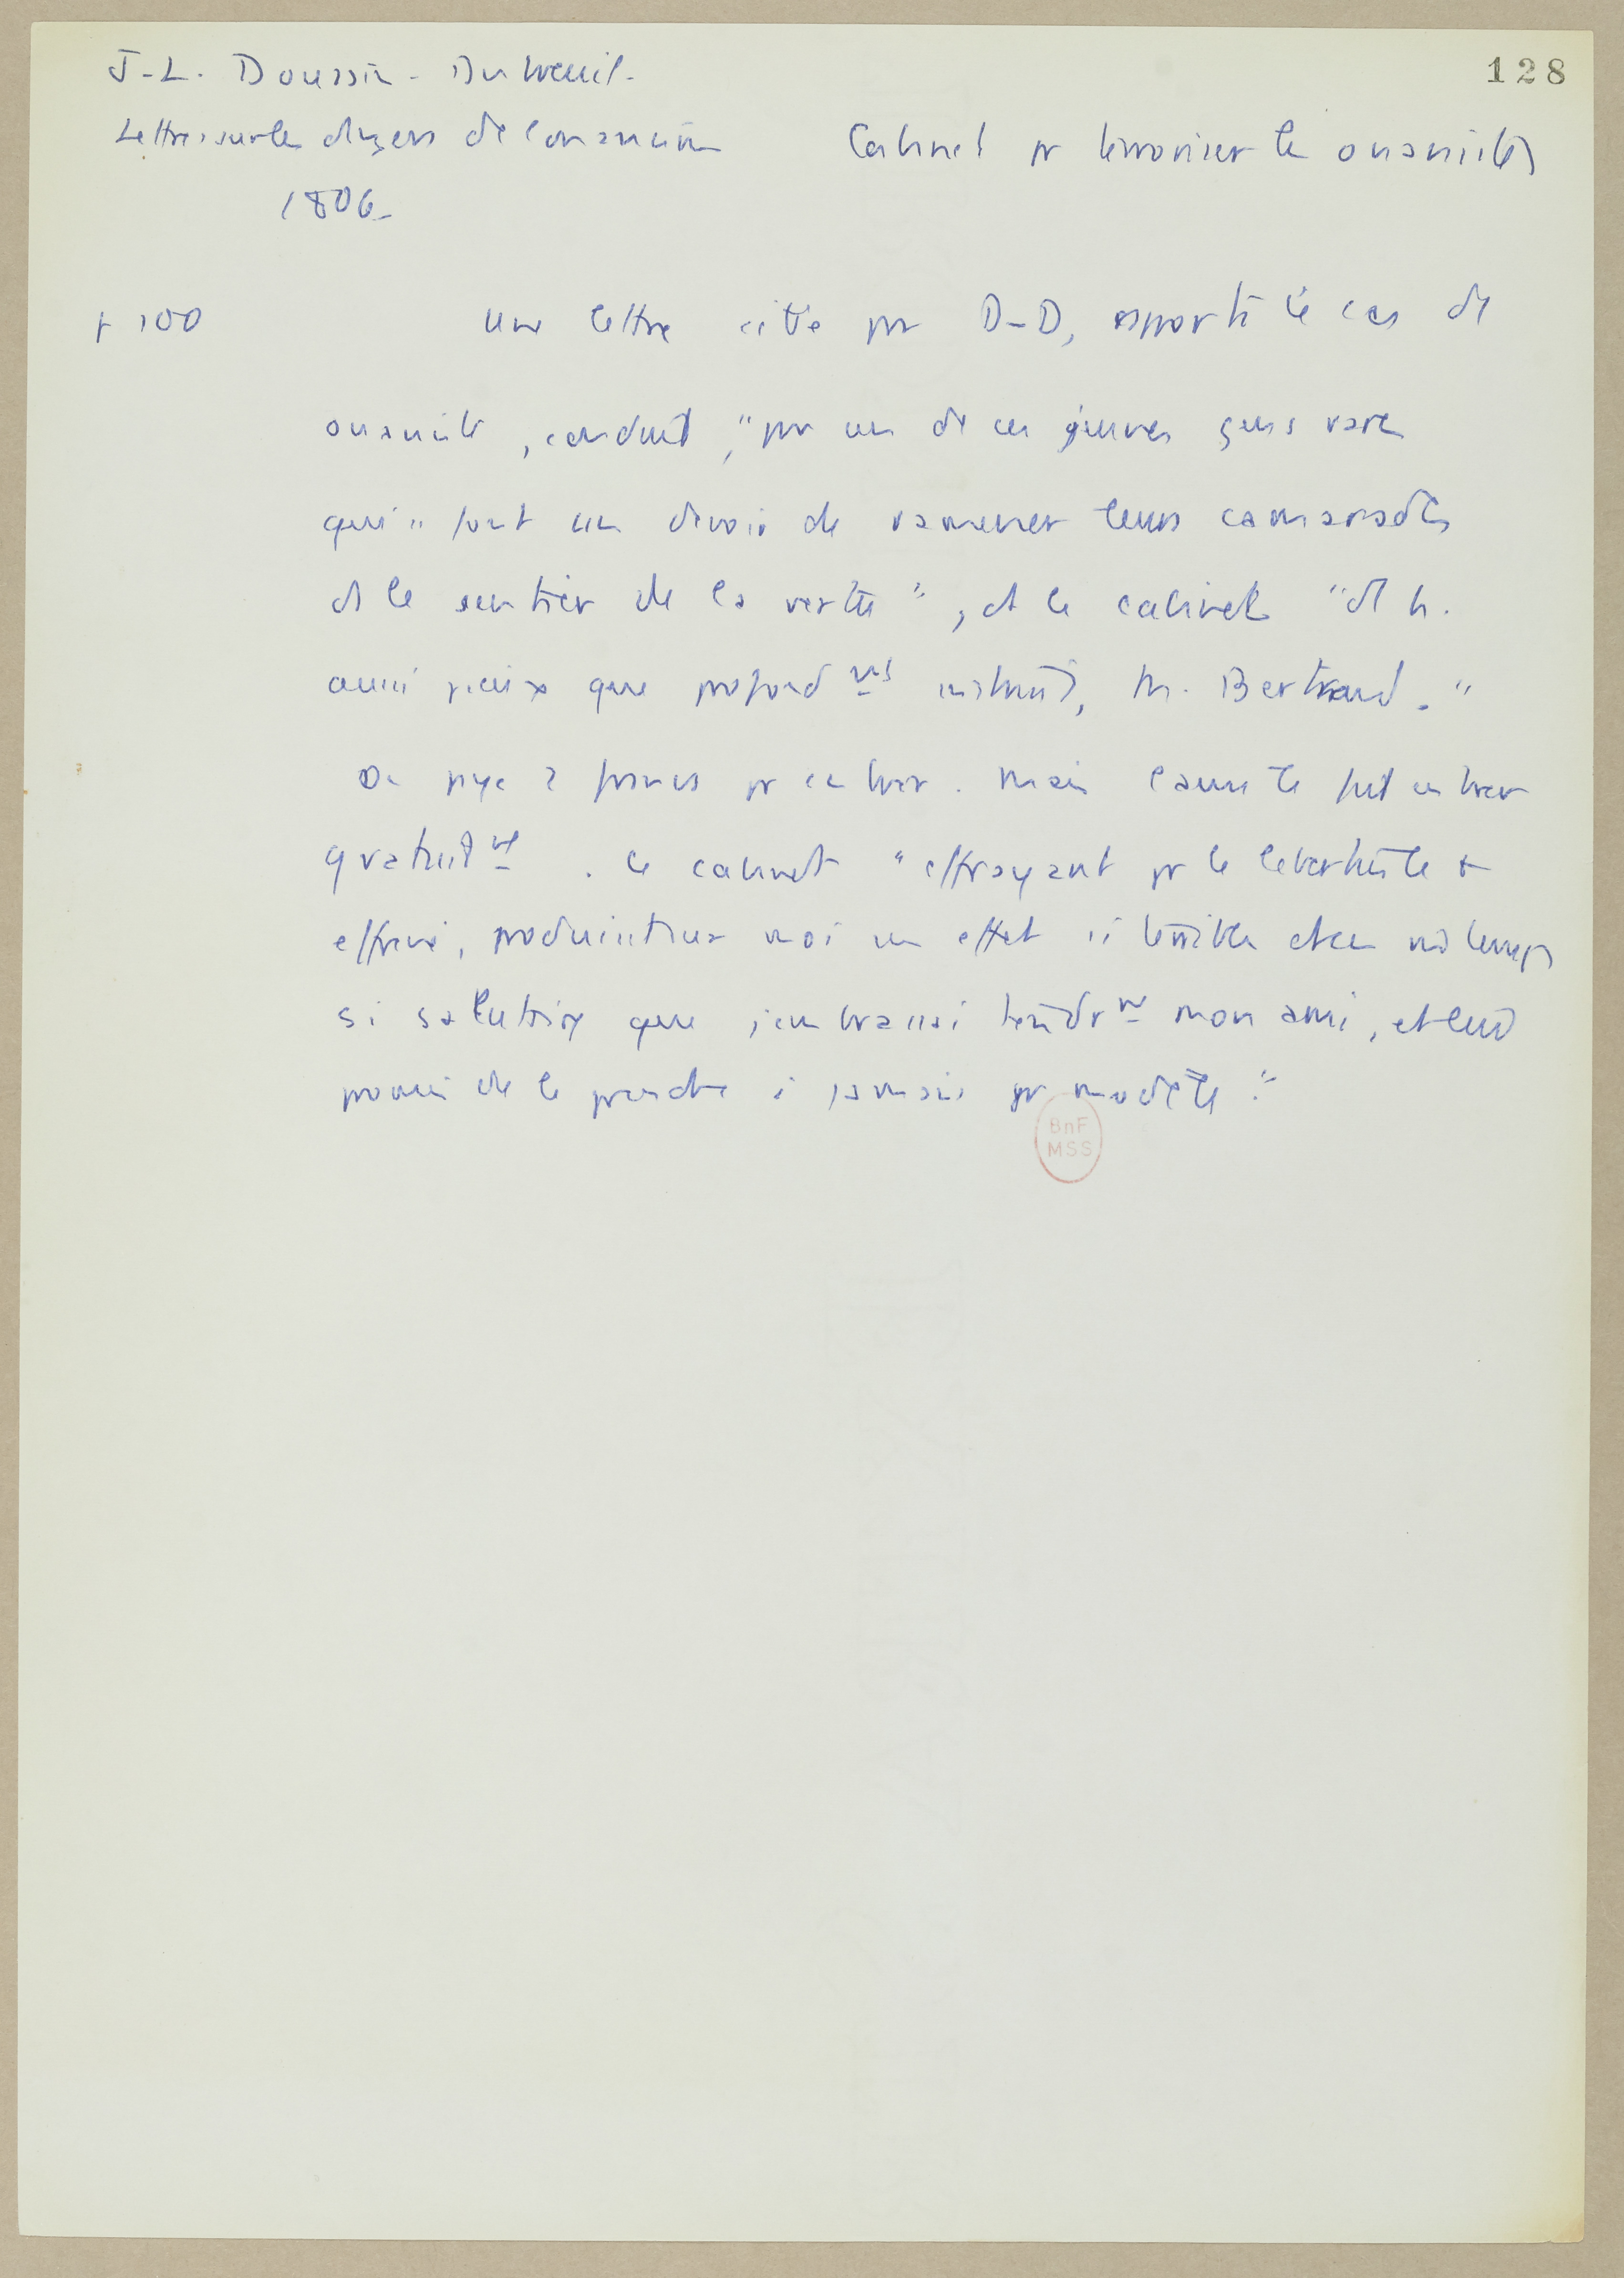 128
J-L. Doussin-Dubreuil.
Lettres sur les dangers de l'onanisme
1806
Cabinet pr terroriser les onanistes
p 100
Une lettre citée par D-D, rapporte le cas de
onaniste, conduit, "par un de ces jeunes gens rares
qui se font un devoir de ramener leurs camarades
ds le sentier de la vertu", ds le cabinet "de M.
aussi pieux que profondmt instruit, M. Bertrand."
On paye 2 francs pr entrer. Mais l'onaniste fut entrer
gratuitmt. Le cabinet "effrayant pr le libertin le +
effréné, produisit sur moi un effet si terrible et en mê temps
si salutaire que j'embrassai tendrmt mon ami, et lui
promis de le prendre à jamais pr modèle."
BnF
MSS